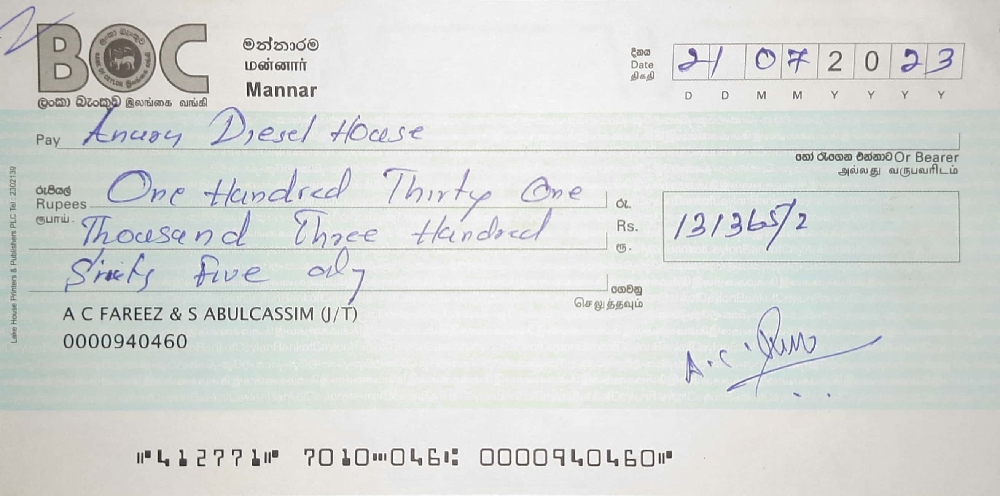 BOC
ලංකා බැංකුව இலங்கை வங்கி
මන්නාරම
மன்னார்
Mannar
දිනය
Date
திகதி
21 07 2023
D D M M Y Y Y Y
Pay Diesel House
හෝ රැගෙන එන්නාට Or Bearer
அல்லது வருபவரிடம்
රුපියල්
Rupees
ரூபாய்
One Handred Thirty One
Thousand Three Handred
Five only
රු.
Rs.
ரூ.
131365/2
ගෙවනු
செலுத்தவும்
A C FAREEZ & S ABULCASSIM (J/T)
0000940460
A.C.
412771 7010 046 0000940460
Lake House Printers & Publishers PLC Tel : 2302139